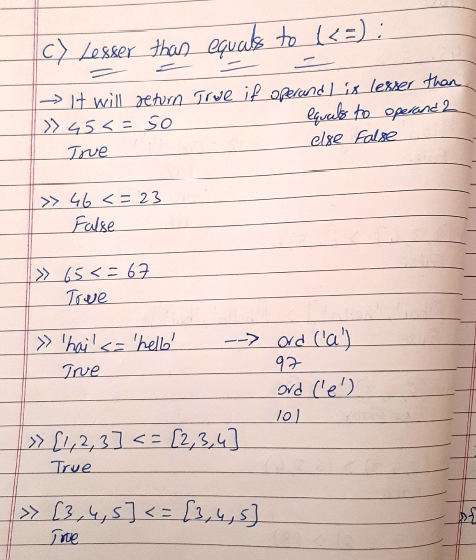 C) Lesser than equals to (<=) :
→ It will return True if operand1 is lesser than
equals to operand2
else False
>> 45 <= 50
True
>> 46 <= 23
False
>> 65 <= 67
True
>> 'hai' <= 'hello' --> ord ('a')
True
97
ord ('e')
101
>> [1,2,3] <= [2,3,4]
True
>> [3,4,5] <= [3,4,5]
True